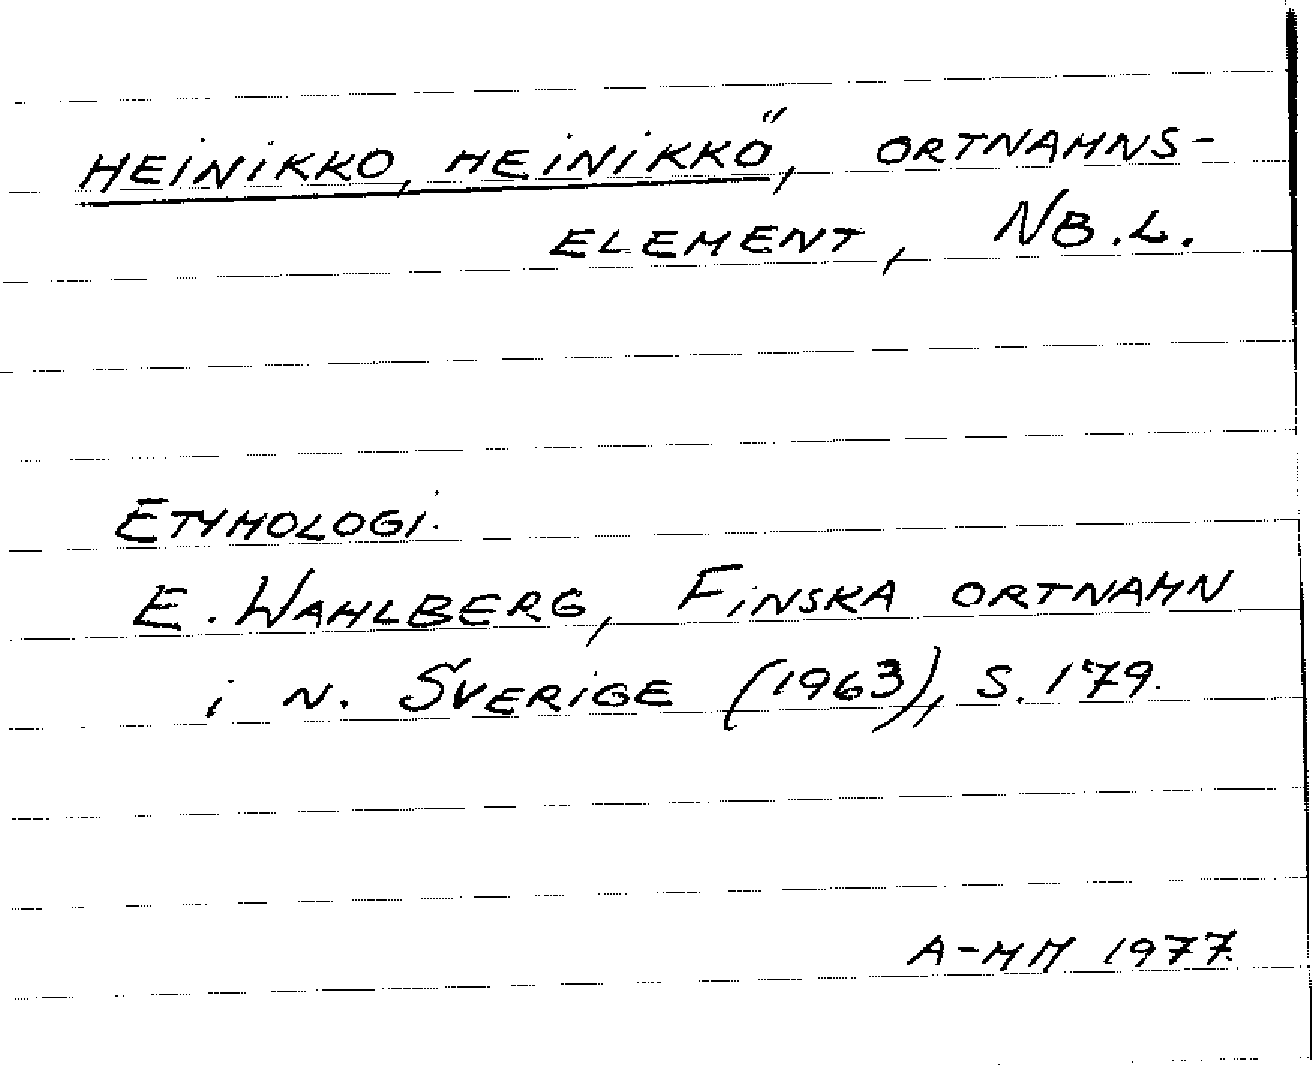 HEINIKKO, HEINIKKÖ, ORTNAMNS-
ELEMENT, NB.L.
ETYMOLOGI.
E. WAHLBERG, FINSKA ORTNAMN
i N. SVERIGE (1963), S. 179.
A-MM 1977.